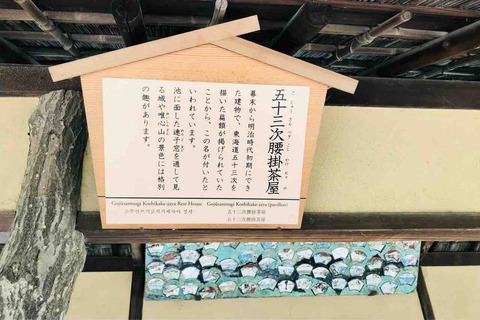 五十三次腰掛茶屋
幕末から明治時代初期にでき
た建物で、東海道五十三次を
描いた扁額が掲げられていた
ことから、この名が付いたと
いわれています。
池に面した連子窓を通して見
る城や唯心山の景色には格別
の趣があります。
Gojūsantsugi Koshikake-jaya Rest House Gojūsantsugi Koshikake-jaya (pavilion)
五十三次腰掛茶屋
五十三次腰掛茶屋